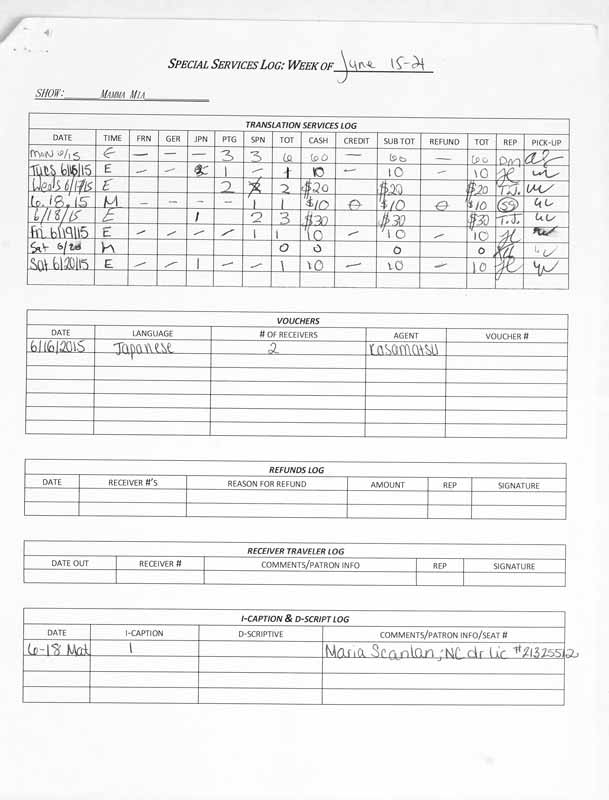 SPECIAL SERVICES LOG: WEEK OF June 15-21
SHOW: MAMMA MIA
TRANSLATION SERVICES LOG
DATE TIME FRN GER JPN PTG SPN TOT CASH CREDIT SUB TOT REFUND TOT REP PICK-UP
Mon 6/15 E — — — 3 3 6 60 — 60 — 60 DM
Tues 6/16/15 E — — 1 — 1 10 — 10 — 10 JL
Weds 6/17/15 E 2 2 $20 $20 $20 T.J.
6.18.15 M - - - - 1 1 $10 0 $10 0 $10 SS
6/18/15 E 1 2 3 $30 $30 $30 T.J.
Fri 6/19/15 E — — — — 1 1 10 — 10 — 10 JL
Sat 6/20 M 0 0 0 0
Sat 6/20/15 E — — 1 — — 1 10 — 10 — 10 JL
VOUCHERS
DATE LANGUAGE # OF RECEIVERS AGENT VOUCHER #
6/16/2015 Japanese 2 Kasamatsu
REFUNDS LOG
DATE RECEIVER #'S REASON FOR REFUND AMOUNT REP SIGNATURE
RECEIVER TRAVELER LOG
DATE OUT RECEIVER # COMMENTS/PATRON INFO REP SIGNATURE
I-CAPTION & D-SCRIPT LOG
DATE I-CAPTION D-SCRIPTIVE COMMENTS/PATRON INFO/SEAT #
6-18 Mat 1 Maria Scanlan, NC dr lic #21325512